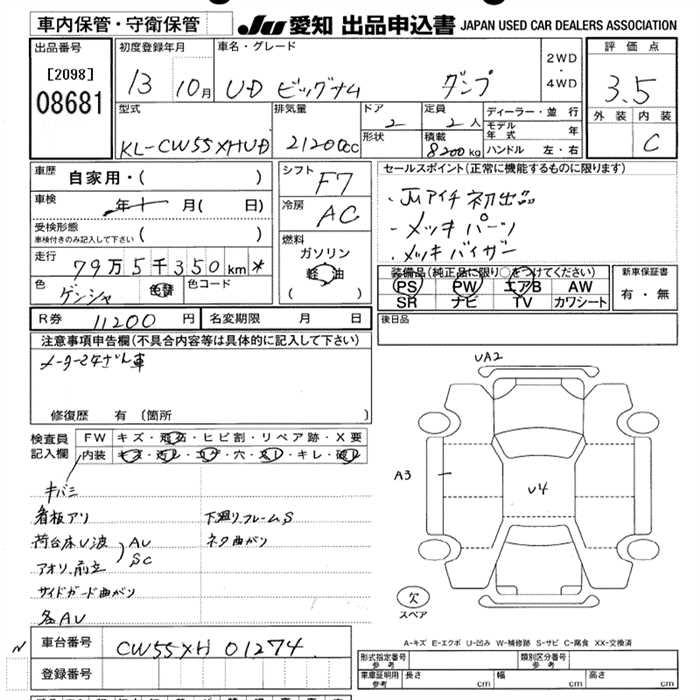 車内保管・守衛保管 JU 愛知 出品申込書 JAPAN USED CAR DEALERS ASSOCIATION
出品番号
[2098]
08681
初度登録年月
13 10月
車名・グレード
U・D ビッグサム ダンプ
2WD
・
4WD
評価点
3.5
外装 内装
C
型式
KL-CW55XHUD
排気量
21200cc
ドア
2
形状
定員
2人
積載
8200kg
ディーラー・並行
モデル年式 年
ハンドル 左・右
車歴
自家用・( )
車検
年 月( 日)
受検形態
車検付きのみ記入して下さい
( )
走行
79万5千350km *
色
ゲンシャ
色替
色コード
シフト
F7
冷房
AC
燃料
ガソリン
軽油
( )
セールスポイント(正常に機能するものに限ります)
・JUアイチ初出品
・メッキパーツ
・メッキバイザー
装備品(純正品に限り○をつけてください)
PS PW エアB AW
SR ナビ TV カワシート
新車保証書
有・無
後日品
R券 11200円 名変期限 月 日
注意事項申告欄(不具合内容等は具体的に記入して下さい)
修復歴 有(箇所 )
検査員記入欄
FW キズ・飛石・ヒビ割・リペア跡・X要
内装 キズ・汚レ・コゲ・穴・スレ・キレ・破レ
キバミ
看板アリ
荷台床U波
アオリ、前立
AU
SC
サイドガード曲がり
各AU
下廻り、フレームS
ネタ曲がり
UA2
A3
U4
欠
スペア
A-キズ E-エクボ U-凹み W-補修跡 S-サビ C-腐食 XX-交換済
車台番号 CW55XH 01274
登録番号
型式指定番号 参考
類別区分番号 参考
車庫証明用参考 長さ cm 幅 cm 高さ cm